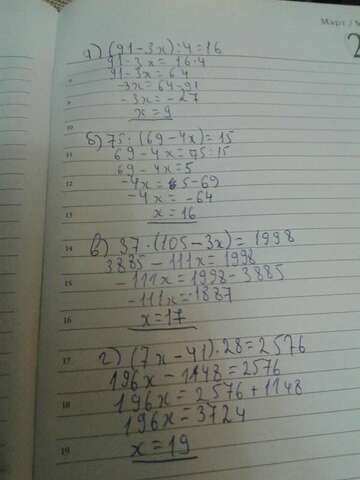 Март / М
2
а) (91-3x):4=16
91-3x=16·4
91-3x=64
-3x=64-91
-3x=-27
x=9
10
б) 75:(69-4x)=15
11
69-4x=75:15
69-4x=5
12
-4x=5-69
-4x=-64
13
x=16
14
в) 37·(105-3x)=1998
3885-111x=1998
15
-111x=1998-3885
-111x=-1887
16
x=17
17
г) (7x-41)·28=2576
196x-1148=2576
18
196x=2576+1148
196x=3724
19
x=19